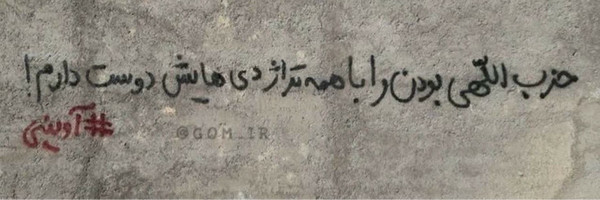 حزب اللهی بودن را با همه تراژدی هایش دوست دارم!
#آوینی
@GOM_IR